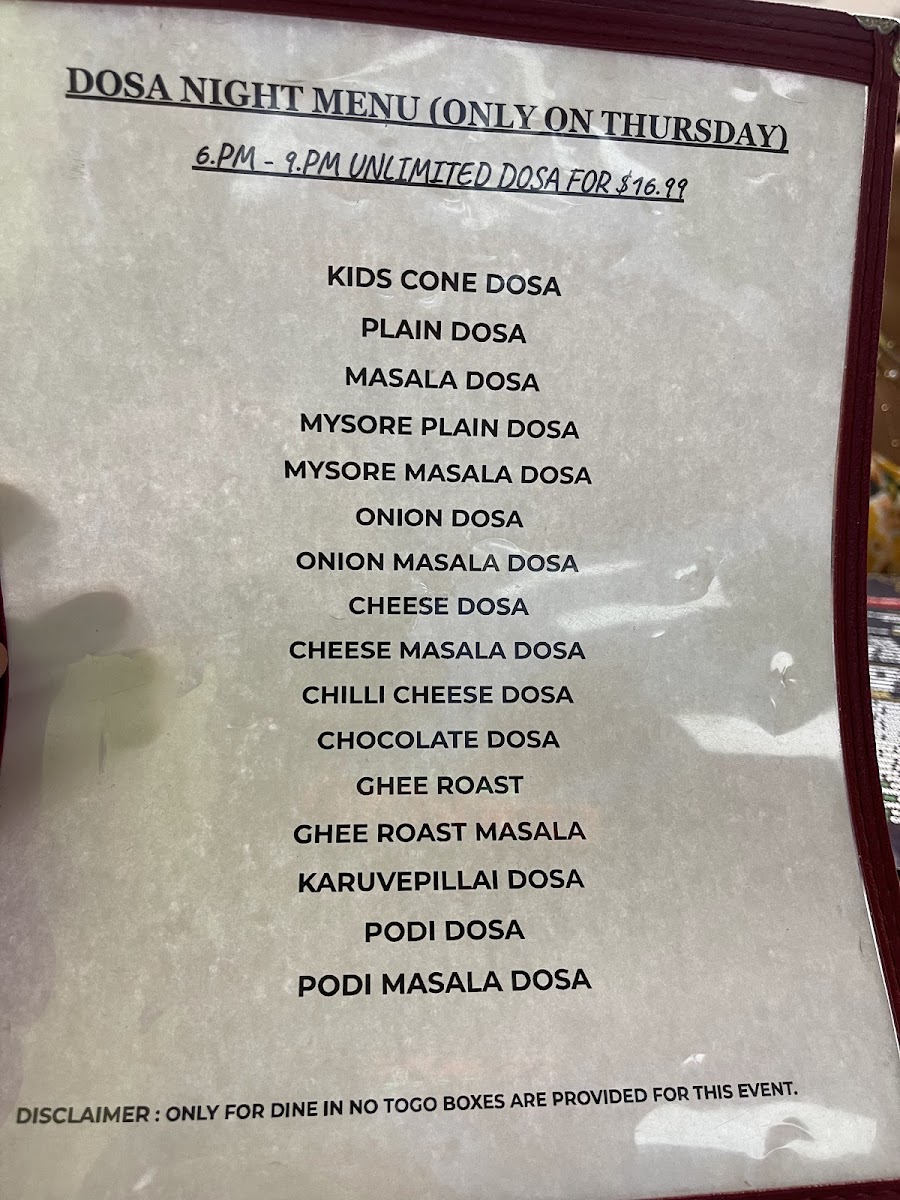 DOSA NIGHT MENU (ONLY ON THURSDAY)
6.PM - 9.PM UNLIMITED DOSA FOR $16.99
KIDS CONE DOSA
PLAIN DOSA
MASALA DOSA
MYSORE PLAIN DOSA
MYSORE MASALA DOSA
ONION DOSA
ONION MASALA DOSA
CHEESE DOSA
CHEESE MASALA DOSA
CHILLI CHEESE DOSA
CHOCOLATE DOSA
GHEE ROAST
GHEE ROAST MASALA
KARUVEPILLAI DOSA
PODI DOSA
PODI MASALA DOSA
DISCLAIMER : ONLY FOR DINE IN NO TOGO BOXES ARE PROVIDED FOR THIS EVENT.